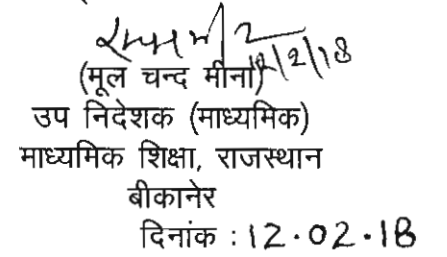 12/2/18
(मूल चन्द मीना)
उप निदेशक (माध्यमिक)
माध्यमिक शिक्षा, राजस्थान
बीकानेर
दिनांक : 12.02.18